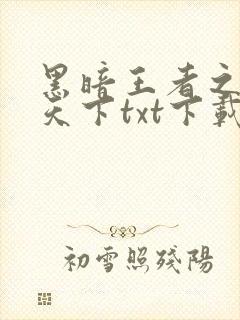 黑暗王者之
天下txt下載
初雪照殘陽